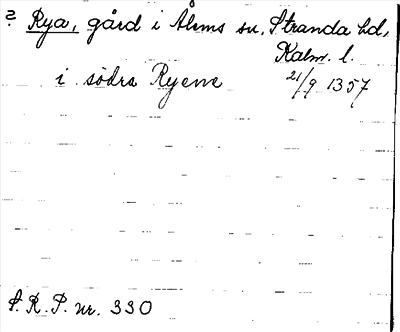 ? Rya, gård i Ålems sn, Stranda hd,
Kalm. l.
i södra Ryene 21/9 1357
S.R.P. nr. 330